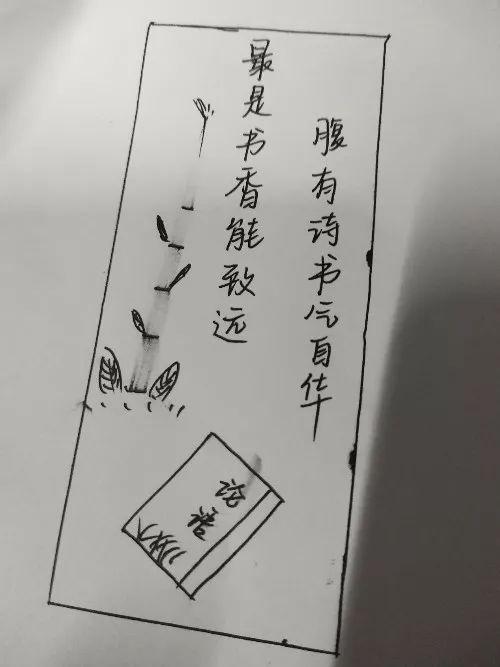 最是书香能致远
腹有诗书气自华
论语